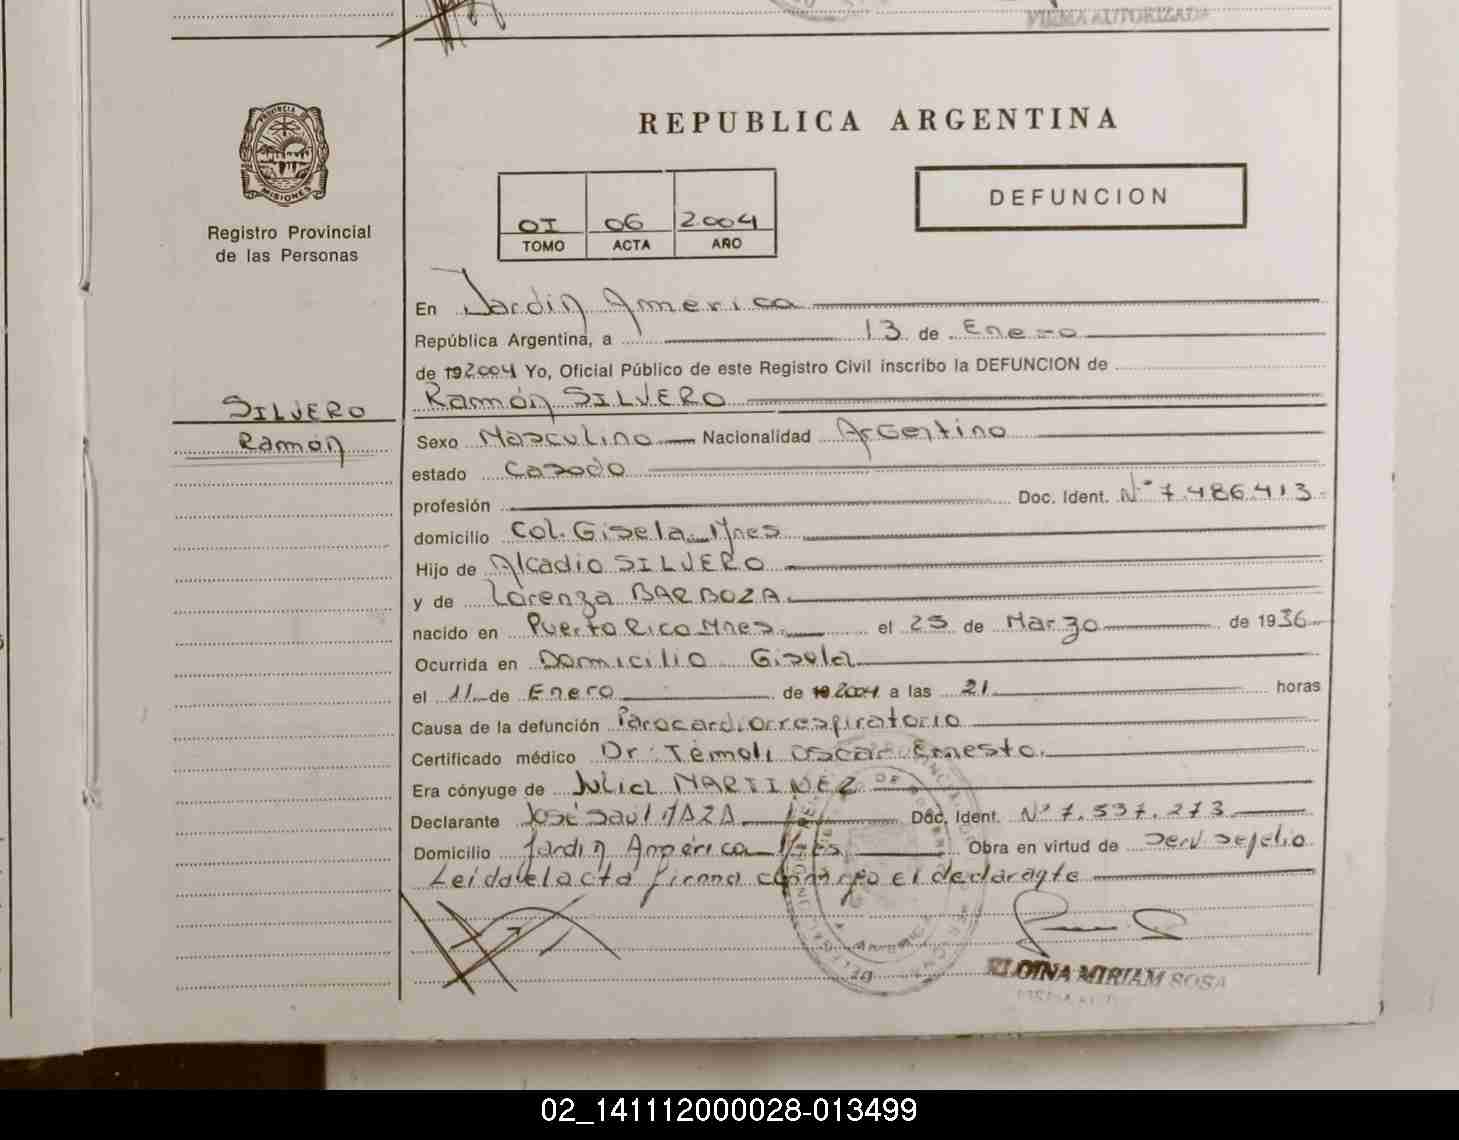 FIRMA AUTORIZADA
PROVINCIA DE
MISIONES
Registro Provincial
de las Personas
REPUBLICA ARGENTINA
DEFUNCION
01 06 2004
TOMO ACTA AÑO
SILVERO
Ramón
En Jardín América
República Argentina, a 13 de Enero
de 192004 Yo, Oficial Público de este Registro Civil inscribo la DEFUNCION de
Ramón SILVERO
Sexo Masculino Nacionalidad Argentino
estado Casado
profesión Doc. Ident. Nº 7.486.413
domicilio Col. Gisela Mnes
Hijo de Alcadio SILVERO
y de Lorenza BARBOZA
nacido en Puerto Rico Mnes. el 25 de Marzo de 1936
Ocurrida en Domicilio Gisela
el 11 de Enero de 192004 a las 21 horas
Causa de la defunción Parocardiorrespiratorio
Certificado médico Dr: Témoli Oscar Ernesto.
Era cónyuge de Julia MARTINEZ
Declarante José Saúl MAZA Doc. Ident. Nº 7.537.273
Domicilio Jardín América Mnes Obra en virtud de Serv sepelio
Leída el acta firma conmigo el declarante
ELOINA MIRIAM SOSA
02_141112000028-013499